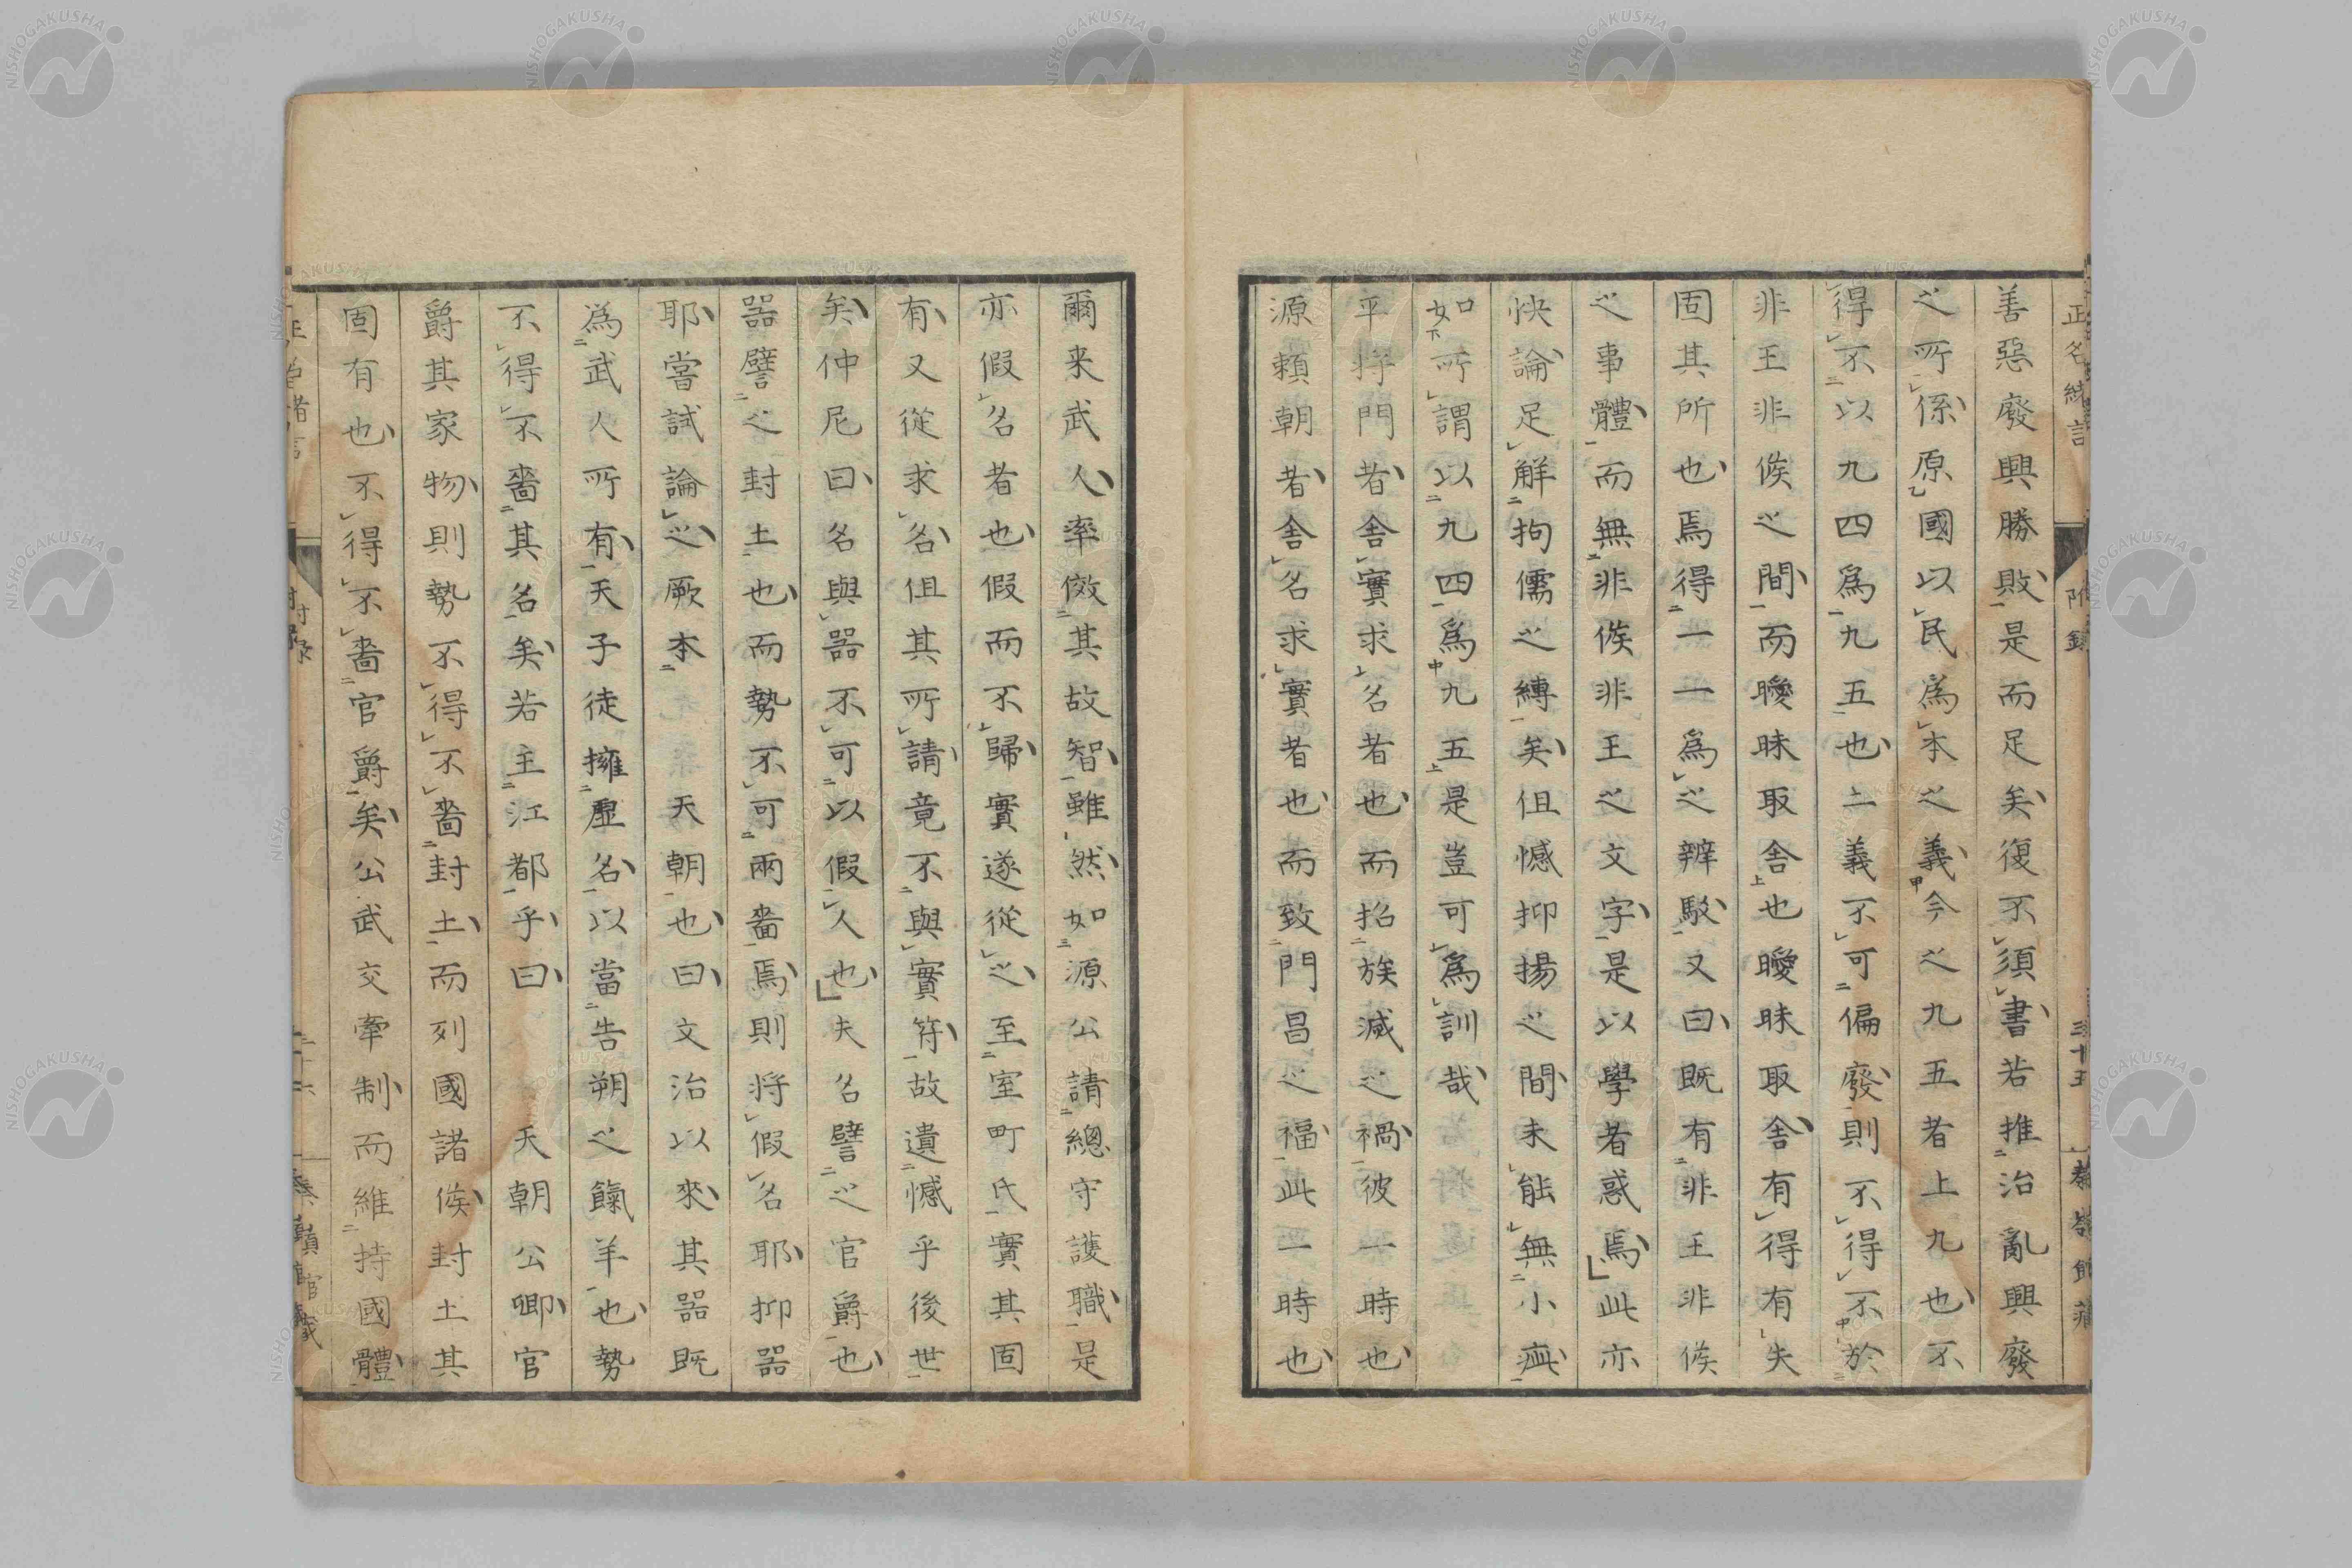 善惡廢興勝敗是而足矣復不須書若推治亂興廢
之所係原國以民爲本之義今之九五者上九也不
得不以九四爲九五也二義不可偏廢則不得不於
非王非侯之間而曖昧取舍也曖昧取舍有得有失
固其所也焉得一一爲之辨駁又曰既有非王非侯
之事體而無非侯非王之文字是以學者惑焉此亦
快論足解拘儒之縛矣但憾抑揚之間未能無小疵
如所謂以九四爲九五是豈可爲訓哉
平將門者舍實求名者也而招族滅之禍彼一時也
源賴朝者舍名求實者也而致門昌之福此一時也
正名緒言
附錄
三十五
蓁嶺館藏
爾来武人率傚其故智雖然如源公請總守護職是
亦假名者也假而不歸實遂從之至室町氏實其固
有又從求名但其所請竟不與實符故遺憾乎後世
矣仲尼曰名與器不可以假人也夫名譬之官爵也
器譬之封土也而勢不可兩嗇焉則將假名耶抑器
耶嘗試論之厥本 天朝也曰文治以來其器既
爲武人所有天子徒擁虛名以當告朔之餼羊也勢
不得不嗇其名矣若主江都乎曰 天朝公卿官
爵其家物則勢不得不嗇封土而列國諸侯封土其
固有也不得不嗇官爵矣公武交牽制而維持國體
NISHOGAKUSHA